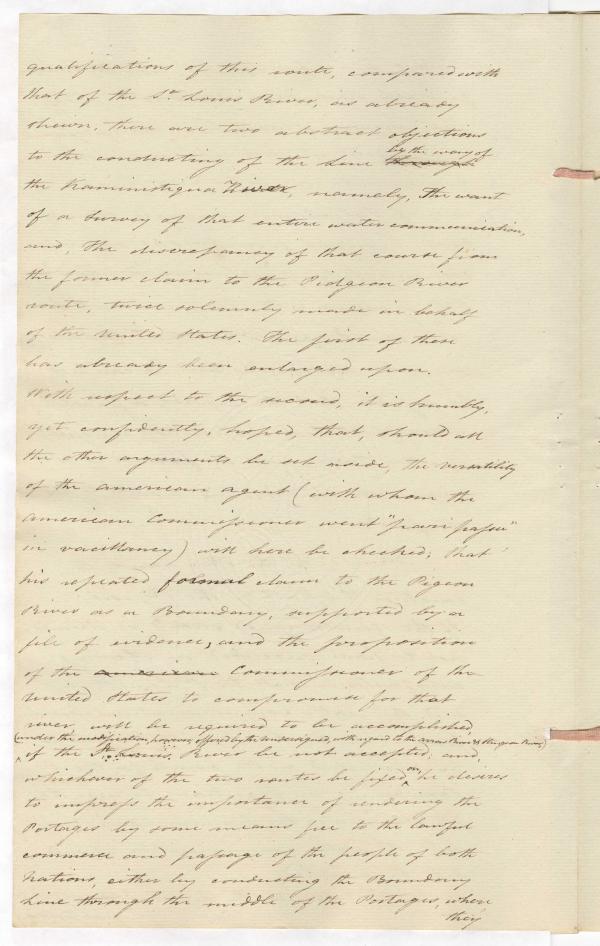 qualifications of this route, compared with
that of the St. Louis River, as already
shewn, there are two abstract objections
by the way of
to the conducting of the Line through
the Kaministiqua River, namely, The want
of a Survey of that entire water communication,
and, the discrepancy of that course from
the former claim to the Pidgeon River
route, twice solemnly made in behalf
of the United States. The first of these
has already been enlarged upon.
With respect to the second, it is humbly,
yet confidently, hoped, that, should all
the other arguments be set aside, the versatility
of the american agent (with whom the
american Commissioner went "pari passu"
in vacillancy) will here be checked; that
his repeated formal claim to the Pigeon
River as a Boundary, supported by a
pile of evidence, and the proposition
of the american Commissioner of the
United States to compromise for that
river, will be required to be accomplished,
(under the modification, however, offered by the undersigned, with regard to the Arrow River & Pigeon River,)
if the St. Louis River be not accepted; and,
whichever of the two routes be fixed on, he desires
to impress the importance of rendering the
Portages by some means free to the lawful
commerce and passage of the people of both
Nations, either by conducting the Boundary
Line through the middle of the Portages, where
they